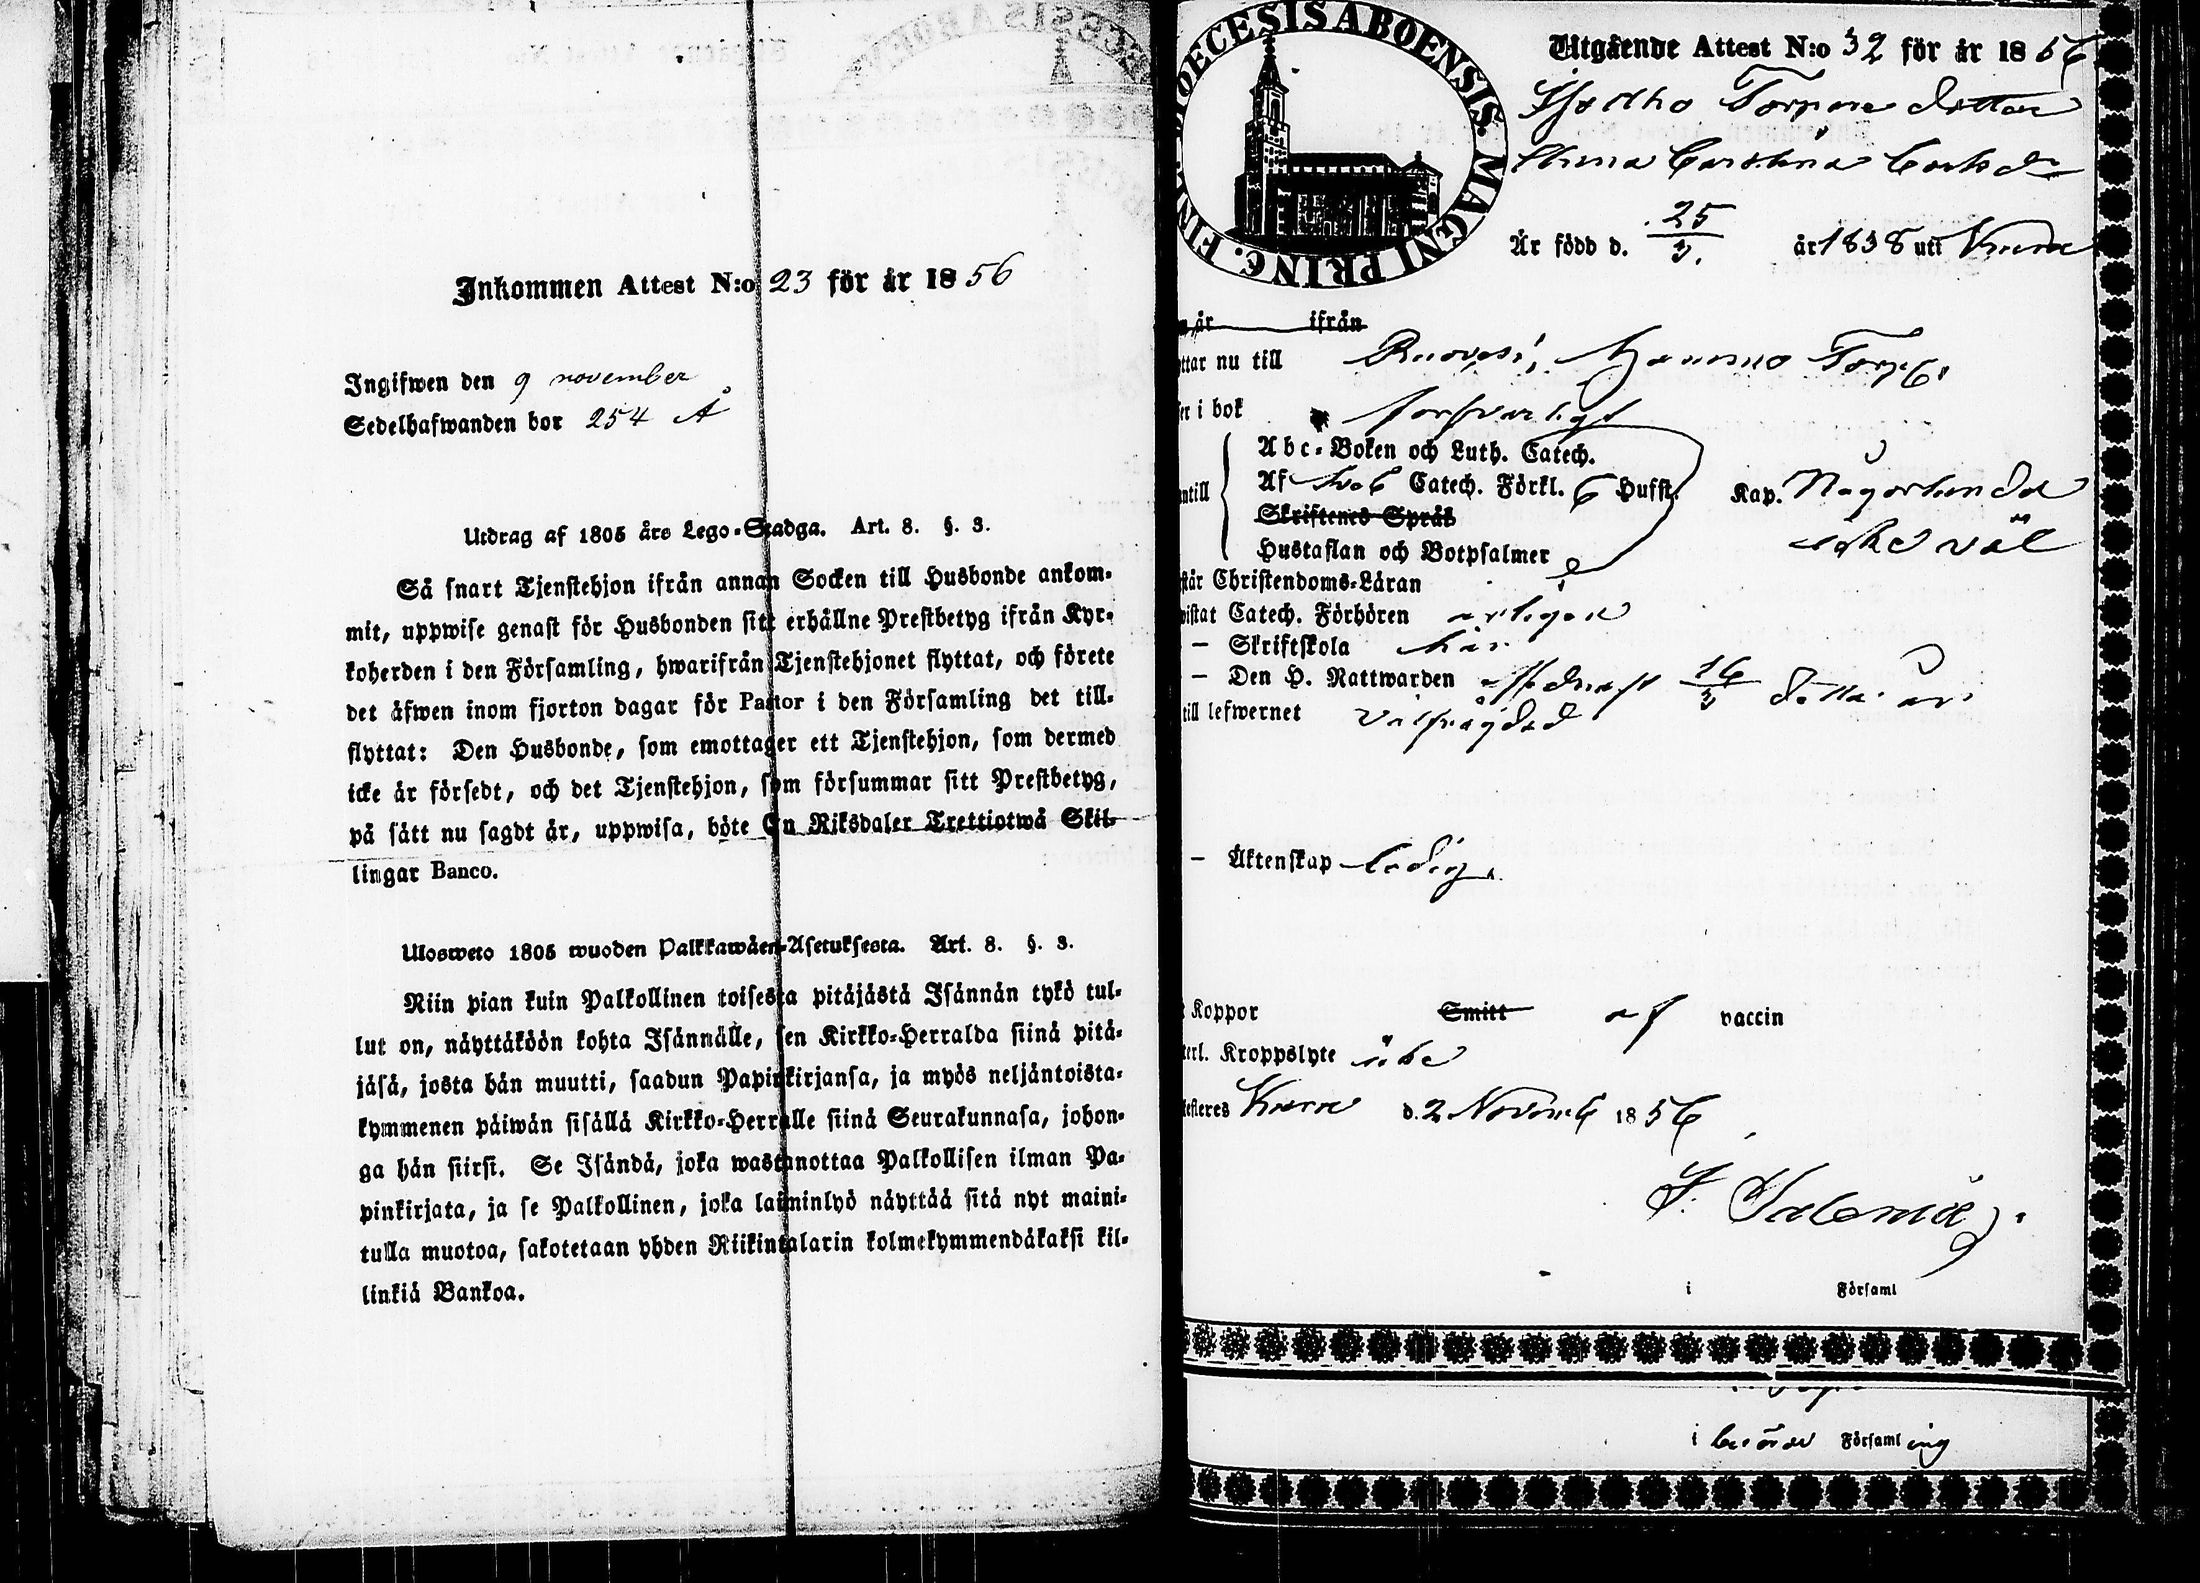 Inkommen Attest N:o 23 för år 1856
Ingifwen den 9 november
Sedelhafwanden bor 254 Å
Utdrag af 1805 års Lego-Stadga. Art. 8. §. 3.
Så snart Tjenstehjon ifrån annan Socken till Husbonde ankom-
mit, uppwise genast för Husbonden sitt erhållne Prestbetyg ifrån Kyr-
koherden i den Församling, hwarifrån Tjenstehjonet flyttat, och förete
det äfwen inom fjorton dagar för Pastor i den Församling det till-
flyttat: Den Husbonde, som emottager ett Tjenstehjon, som dermed
icke är försedt, och det Tjenstehjon, som försummar sitt Prestbetyg,
på sätt nu sagdt är, uppwisa, böte En Riksdaler Trettiotwå Skil-
lingar Banco.
Ulosweto 1805 wuoden Palkkawäen-Asetuksesta. Art. 8. §. 3.
Niin pian kuin Palkollinen toisesta pitäjästä Isännän tykö tul-
lut on, näyttäköön kohta Isännälle, sen Kirkko-Herralda siinä pitä-
jäsä, josta hän muutti, saadun Papinkirjansa, ja myös neljäntoista-
kymmenen päiwän sisällä Kirkko-Herralle siinä Seurakunnasa, johon-
ga hän siirsi. Se Isändä, joka wastanottaa Palkollisen ilman Pa-
pinkirjata, ja se Palkollinen, joka laiminlyö näyttää sitä nyt maini-
tulla muotoa, sakotetaan yhden Riikintalarin kolmekymmendäkaksi kil-
linkiä Bankoa.
DIOECESIS ABOENSIS. MAGNI PRINC. FINL.
Utgående Attest N:o 32 för år 1856
Torpare dotter
Anna Carolina Carlsdr
Är född d. 25/3. år 1838 uti
år ifrån
ttar nu till Ruovesi, Torp.
er i bok försvarligt
Abc-Boken och Luth. Catech.
ntill Af Catech. Förkl. 6 Hufst. Kap. Någorlunda
Skriftenes Språk
icke väl
Hustaflan och Botpsalmer
står Christendoms-Läran
wistat Catech. Förhören årligen
– Skriftskola här
– Den H. Nattwarden sednast 16/3 detta år
till lefwernet välfrägdad
– Äktenskap ledig.
Koppor Smitt af vaccin
terl. Kroppslyte icke
testeres d. 2 Novemb 1856
i Församl
i Församling